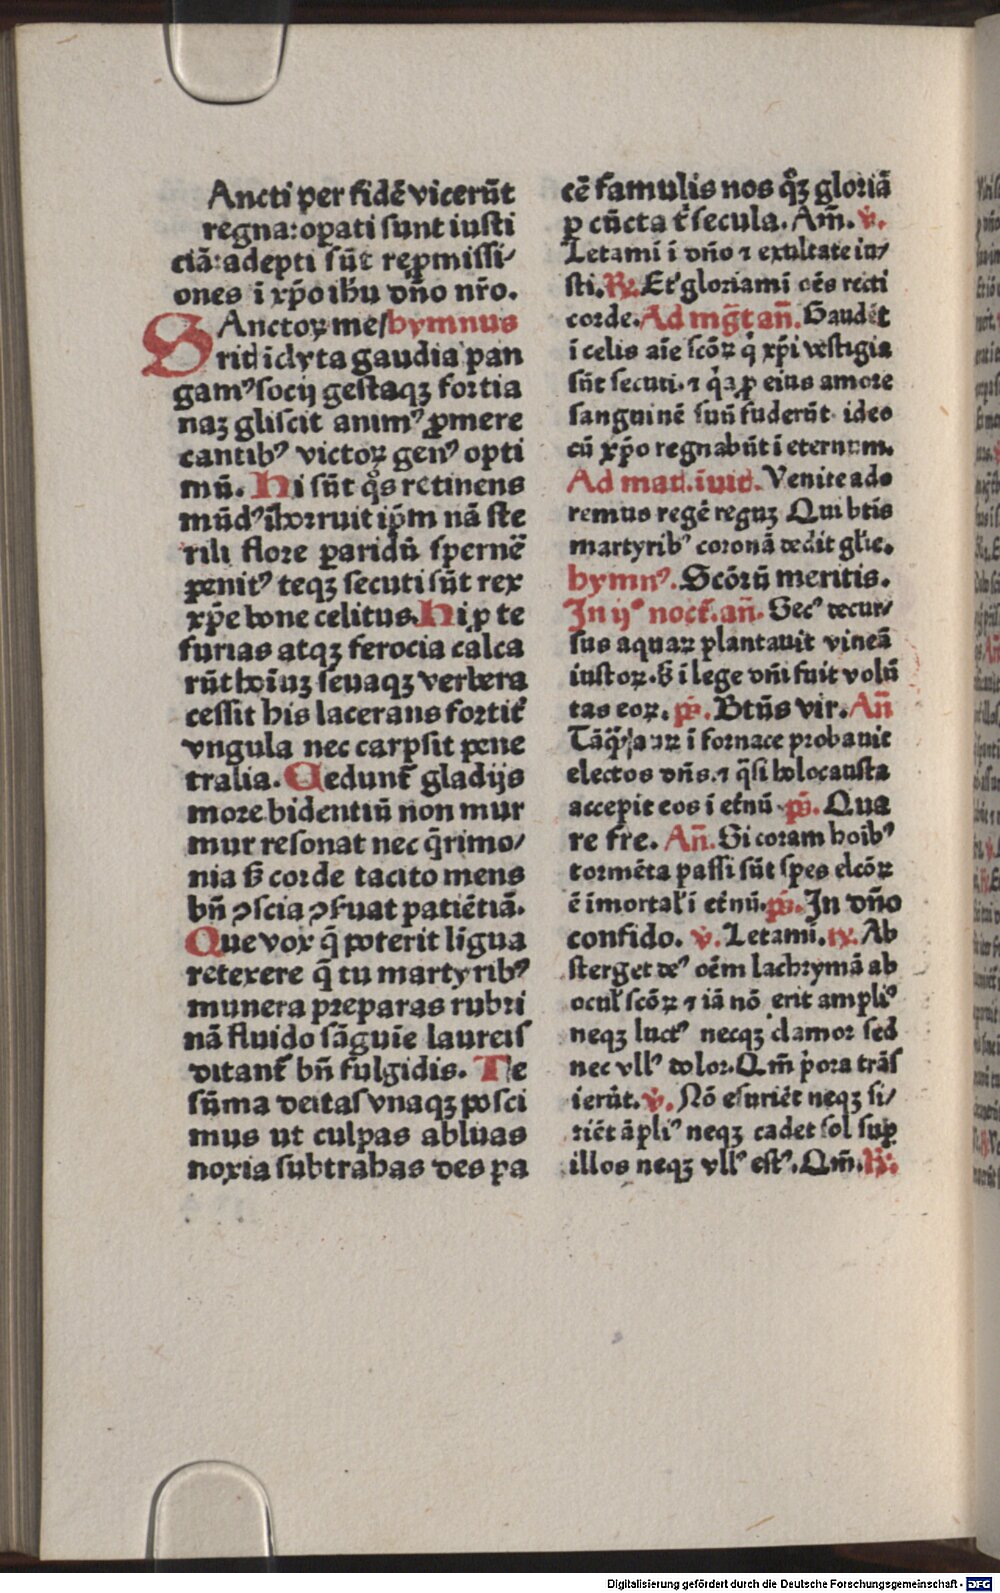 Ancti per fidē vicerūt
regna: opati sunt iusti
ciā: adepti sūt repmissi/
ones ī xp̄o ih̄u dn̄o nr̄o.
S Anctoꝝ meſ hymnus
ritꝰ īclyta gaudia pan
gamꝰ socij gestaqꝫ fortia
naꝫ gliscit animꝰ ꝓmere
cantibꝰ victoꝝ genꝰ opti
mū. Hi sūt qͦs retinens
mūdꝰ īhorruit ip̄m nā ste
rili flore ꝑaridū spernē
penitꝰ teqꝫ secuti sūt rex
xp̄e bone celitus. Hi ꝑ te
furias atqꝫ ferocia calca
rūt hoīuꝫ seuaqꝫ verbera
cessit his lacerans fortit̄
vngula nec carpsit pene
tralia. Cedunt̄ gladijs
more bidentiū non mur
mur resonat nec q̄rimo/
nia sꝫ corde tacito mens
bn̄ ꝯscia ꝯseruat patiētiā.
Que vox q̄ poterit ligua
retexere q̄ tu martyribꝰ
munera preparas rubri
nā fluido sāguīe laureiſ
ditant̄ bn̄ fulgidis. Te
sūma deitaſ vnaqꝫ posci
mus ut culpas abluas
noxia subtrahas des pa
cē famulis nos qͦꝫ gloriā
ꝑ cūcta t̄ secula. Am̄. v̇.
Letami ī dn̄o ⁊ exultate iu/
sti. R̷. Et gloriamī oēs recti
corde. Ad mg̅t an̄. Gaudēt
ī celis aīe scōꝝ q̇ xp̄i vestigia
sūt secuti. ⁊ q̇a ꝓ eius amore
sanguinē suū fuderūt ideo
cū xp̄o regnabūt ī eternum.
Ad mat. īuit. Venite ado
remus regē reguꝫ Qui btīs
martyribꝰ coronā dedit glīe.
hymnꝰ. Scōrū meritis.
In ijͦ noct̄. an̄. Secꝰ decur/
sus aquaꝝ plantauit vineā
iustoꝝ. sꝫ ī lege dn̄i fuit volū
tas eoꝝ. pˢ. Btūs vir. An̄
Tāq̄ auꝝ ī fornace probauit
electos dn̄s. ⁊ q̄si holocausta
accepit eos ī et̄nū. pˢ. Qua
re fre. An̄. Si coram hoibꝰ
tormēta passi sūt spes elcōꝝ
ē imortal̄i et̄nū. pˢ. In dn̄o
confido. v̇. Letamī. rx. Ab
sterget deꝰ oēm lachrymā ab
ocul̄ scōꝝ ⁊ iā nō erit ampliꝰ
neqꝫ luctꝰ necqꝫ clamor sed
nec vllꝰ dolor. Qm̄ p̄ora trāſ
ierūt. v̇. Nō esuriēt neqꝫ si/
tiēt āpliꝰ neqꝫ cadet sol suꝑ
illos neqꝫ vllꝰ estꝰ. Qm̄. R̷.
Digitalisierung gefördert durch die Deutsche Forschungsgemeinschaft - DFG